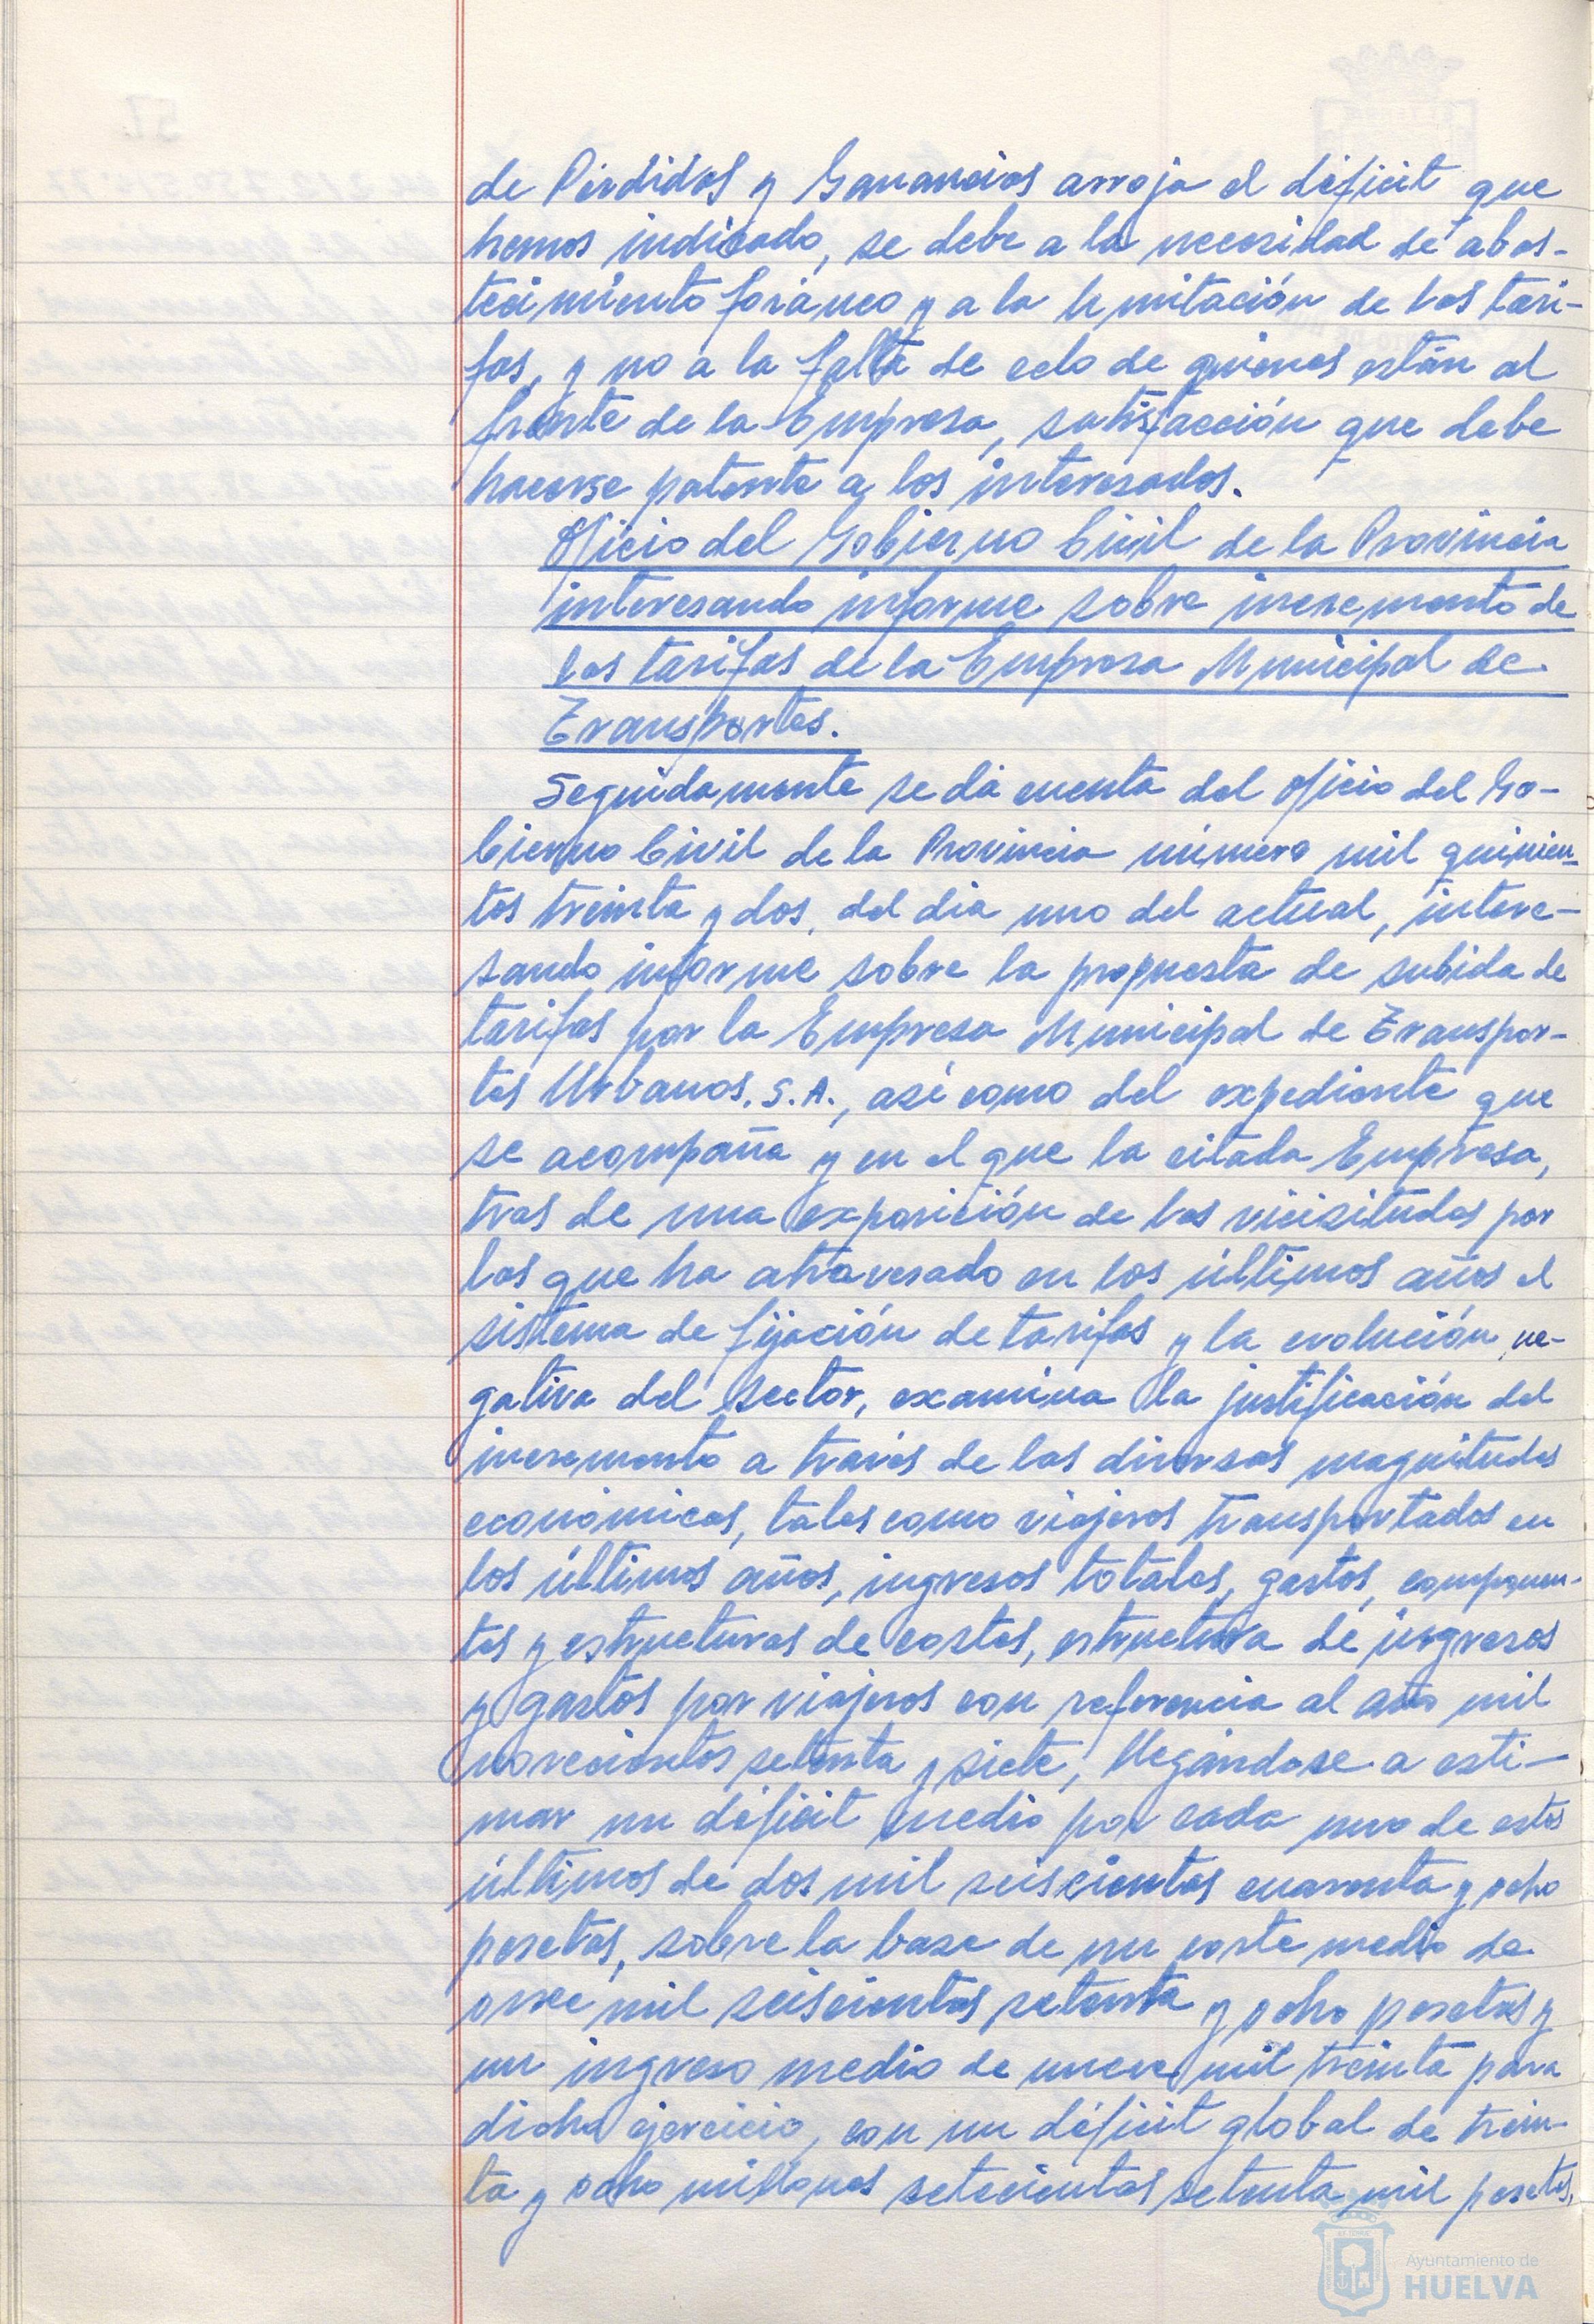 de Pérdidas y Ganancias arroja el déficit que
hemos indicado, se debe a la necesidad de abas-
tecimiento foráneo y a la limitación de las tari-
fas, y no a la falta de celo de quienes están al
frente de la Empresa, satisfacción que debe
hacerse patente a los interesados.
Oficio del Gobierno Civil de la Provincia
interesando informe sobre incremento de
las tarifas de la Empresa Municipal de
Transportes.
Seguidamente se dá cuenta del oficio del Go-
bierno Civil de la Provincia número mil quinien-
tos treinta y dos, del dia uno del actual, intere-
sando informe sobre la propuesta de subida de
tarifas por la Empresa Municipal de Transpor-
tes Urbanos, S.A., así como del expediente que
se acompaña y en el que la citada Empresa,
tras de una exposición de las vicisitudes por
las que ha atravesado en los últimos años el
sistema de fijación de tarifas y la evolución ne-
gativa del sector, examina la justificación del
incremento a través de las diversas magnitudes
económicas, tales como viajeros transportados en
los últimos años, ingresos totales, gastos, componen-
tes y estructuras de costes, estructura de ingresos
y gastos por viajeros con referencia al año mil
novecientos setenta y siete, llegándose a esti-
mar un déficit medio por cada uno de estos
últimos de dos mil seiscientas cuarenta y ocho
pesetas, sobre la base de un coste medio de
once mil seiscientas setenta y ocho pesetas y
un ingreso medio de nueve mil treinta para
dicho ejercicio, con un déficit global de trein-
ta y ocho millones setecientas setenta mil pesetas,
Ayuntamiento de
HUELVA